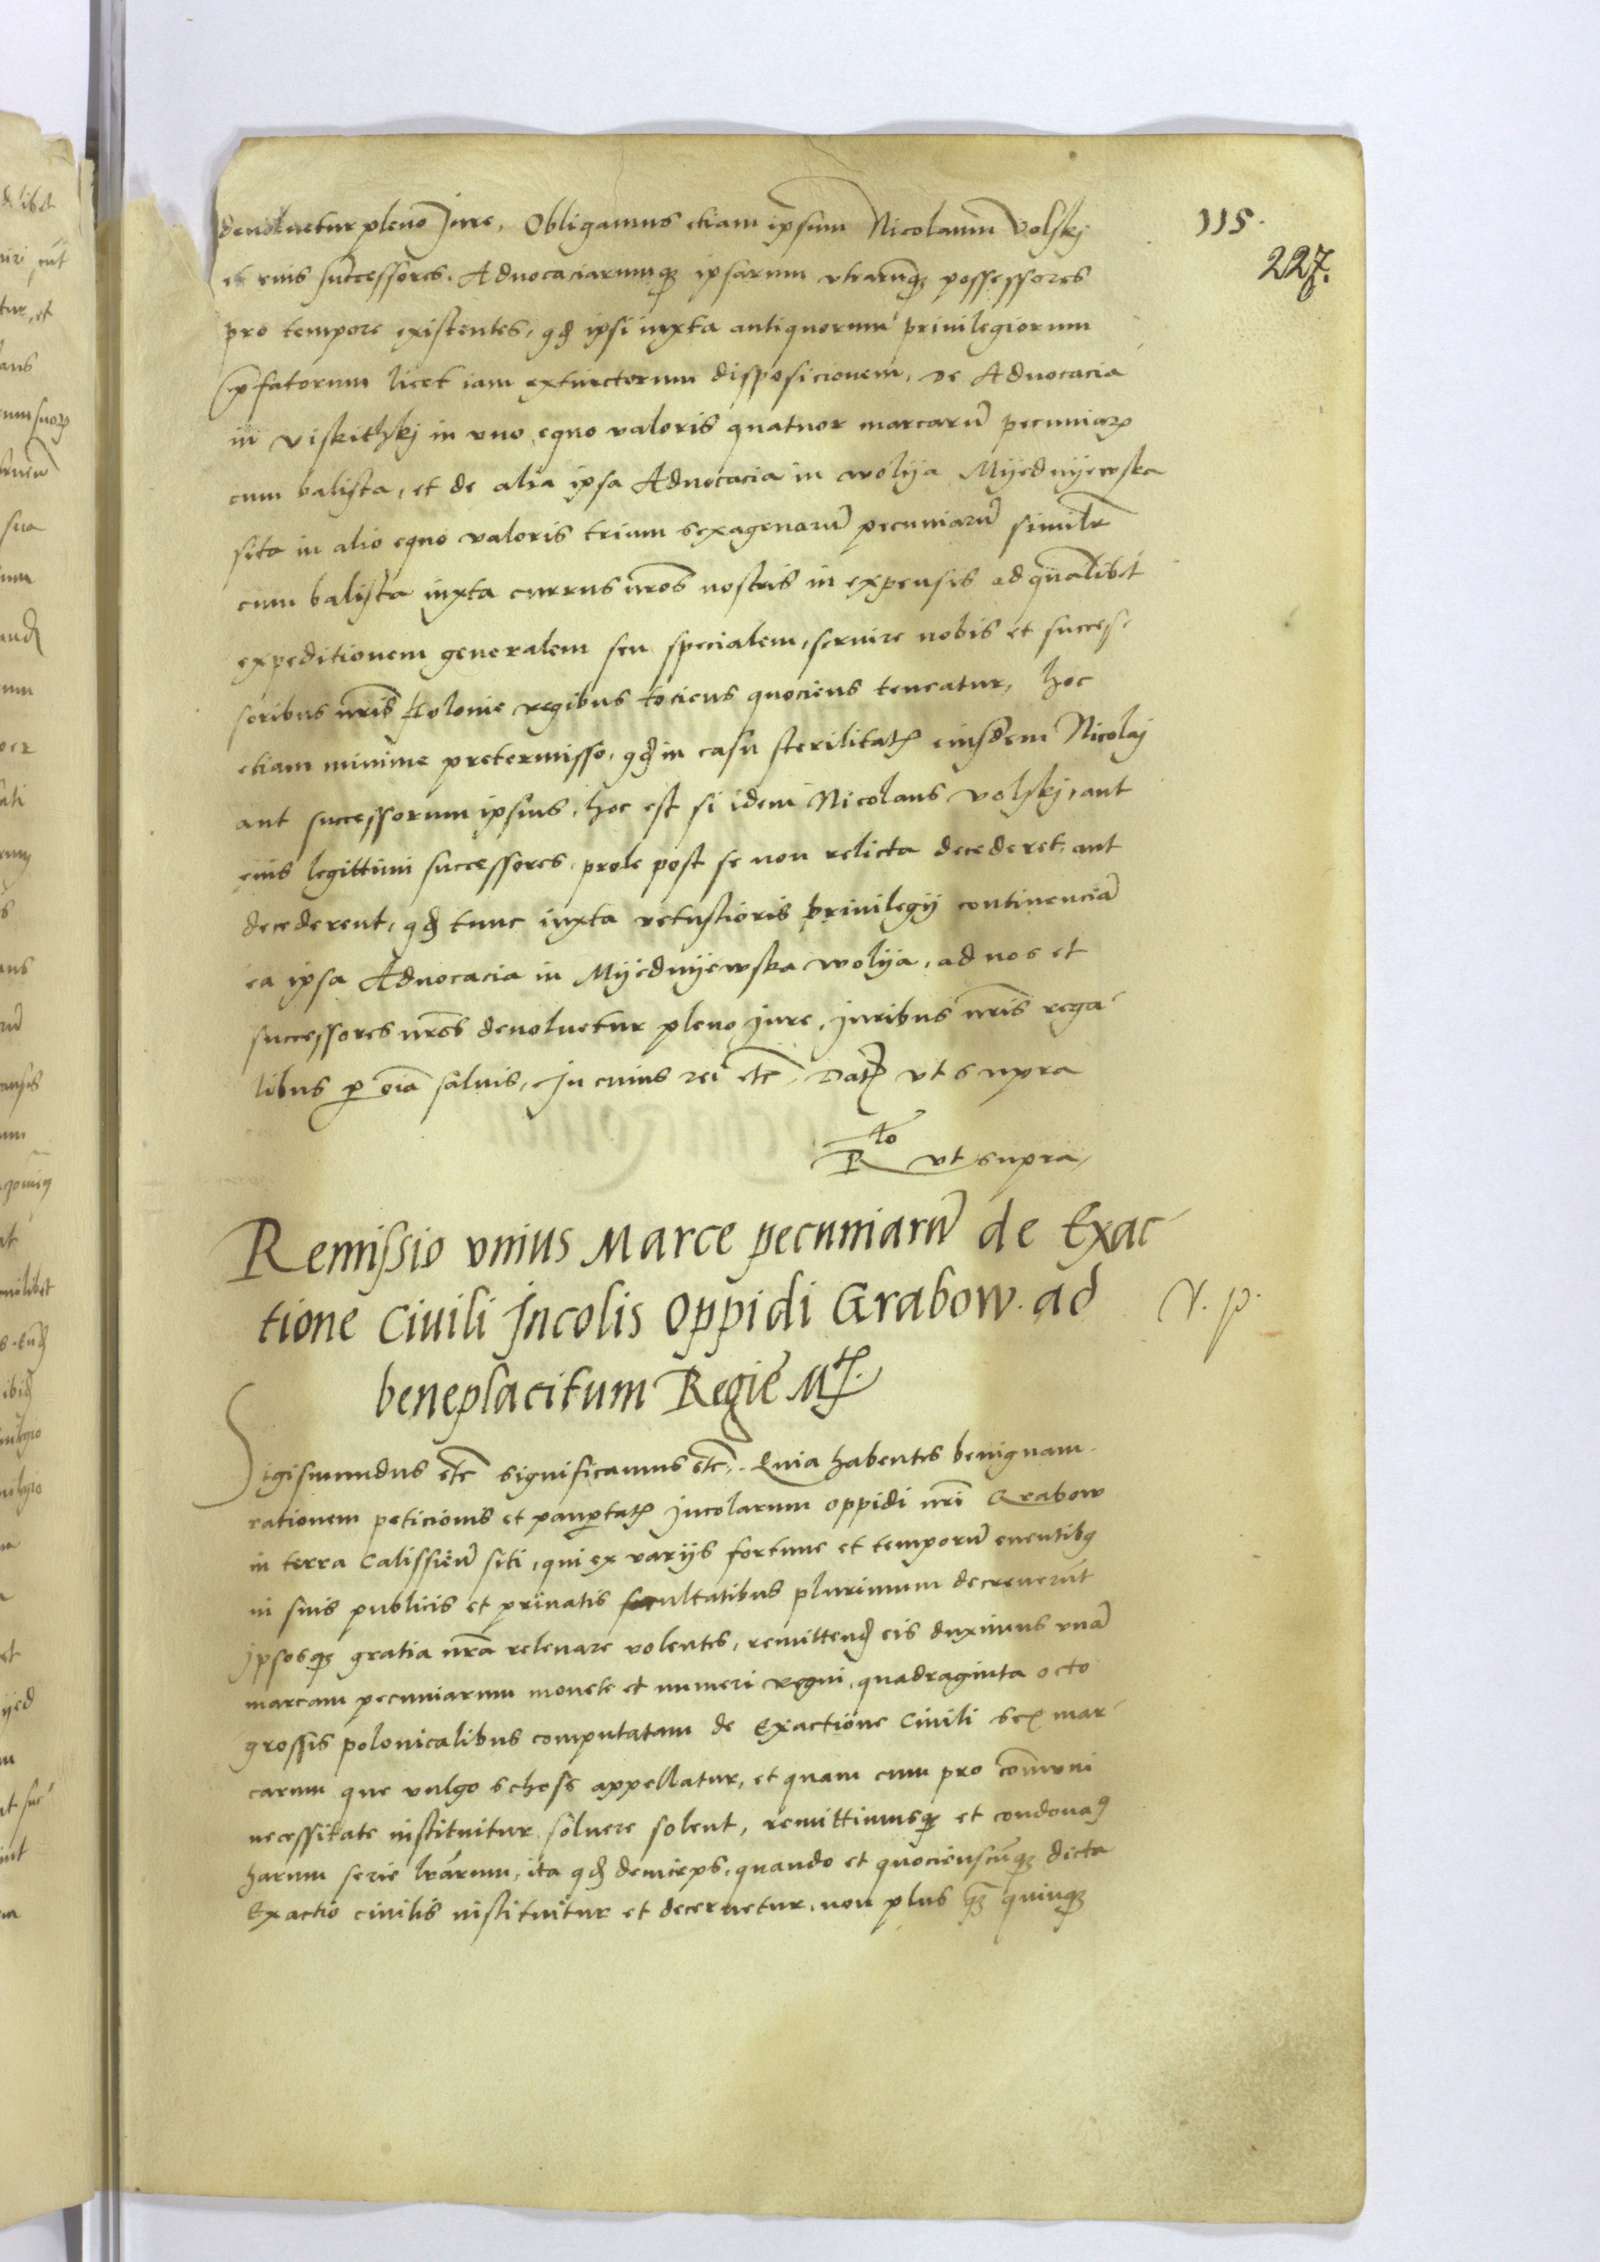 115.
227.
devoluetur pleno Jure, Obligamus etiam ipsum Nicolaum Volskj
et eius successores. Aduocaciarumqꝫ ipsarum vtrarūqꝫ possessores
pro tempore existentes, qd ipsi iuxta antiquorum priuilegiorum
p̄fatorum licet iam extinctorum disposicionem, de Aduocacia
in viskithkj in vno equo valoris quatuor marcarū pecuniaꝝ
cum balista, et de alia ipsa Aduocacia in wolija Mijednijewska
sita in alio equo valoris trium sexagenarū pecuniarū similr̄
cum balista iuxta currus nr̄os nostris in expensis ad qualibet
expeditionem generalem seu specialem, seruire nobis et succes-
soribus nr̄is Polonie regibus tociens quociens teneatur, hoc
etiam minime pretermisso, qd in casu sterilitatꝭ eiusdem Nicolaj
aut successorum ipsius, hoc est si idem Nicolaus volskj, aut
eius legittimi successores, prole post se non relicta decederet, aut
decederent, qd tunc iuxta vetustioris priuilegij continenciā
ea ipsa Aduocacia in Mijednijewska wolija, ad nos et
successores nr̄os deuoluetur pleno Jure, Juribus nr̄is rega-
libus p oīa saluis, In cuius rei etc̄. Datꝭ vt supra
Rto vt supra,
Remissio vnius Marce pecuniarū de Exac-
tione Ciuili Jncolis Oppidi Grabow ad
beneplacitum Regie Mtꝭ.
V. p.
Sigismundus etc̄ significamus etc̄. Quia habentes benignam
rationem peticionis et paup̱tatꝭ Jncolarum oppidi nr̄i Grabow
in terra Calissieñ siti, qui ex varijs fortune et temporū euentibꝯ
in suis publicis et priuatis facultatibus plurimum decreuerūt
Jpsosqꝫ gratia nr̄a releuare volentes, remittend eis duximus vnā
marcam pecuniarum monete et numeri regni, quadraginta octo
grossis polonicalibus computatam de Exactione Ciuili sex mar-
carum que vulgo schoss appellatur, et quam cum pro com̄vni
necessitate instituitur soluere solent, remittimusqꝫ et condonaꝯ
harum serie lr̄arum, ita qd deinceps, quando et quociensciūqꝫ dicta
Exactio ciuilis instituitur et decernetur, non plus qꝫ quinqꝫ